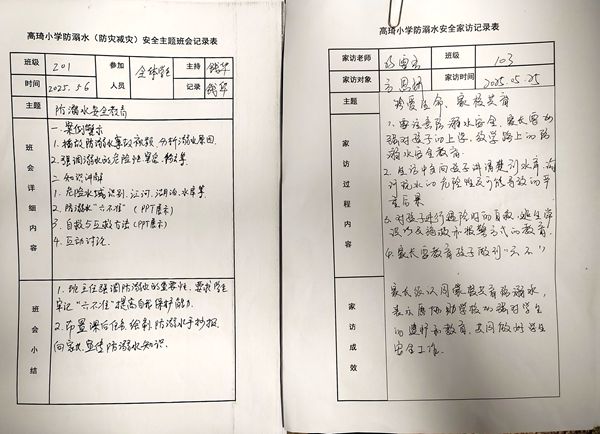 高琦小学防溺水（防灾减灾）安全主题班会记录表
班级 201 参加人员 全体学生 主持 钱华
时间 2025.5.6 记录 钱华
主题 防溺水安全教育
班会详细内容
一、案例警示
1. 播放防溺水事故视频，分析溺水原因.
2. 强调溺水的危险性
二、知识讲解
1. 危险水域识别：江河、湖泊、水库等.
2. 防溺水“六不准”（PPT展示）
3. 自救与互救方法（PPT展示）
4. 互动讨论.
班会小结
1. 班主任强调防溺水的重要性，要求学生
牢记“六不准”提高自我保护能力.
2. 布置课后任务：绘制防溺水手抄报.
向家长宣传防溺水知识.
高琦小学防溺水安全家访记录表
家访老师 班级 103
家访对象 家访时间 2025.05.25
主题 珍爱生命、家校共育
家访过程内容
1. 溺水安全，家长需加
强对孩子的上学、放学路上的防
溺水安全教育.
2. 生活中要向孩子讲清楚到水库
的危险性及可能导致的严
重后果
3. 对孩子进行遇险时的自救、逃生常
识以及施救和报警方式的教育.
4. 家长需教育孩子做到“六不”
家访成效
家长能认同家校共育防溺水，
表示愿协助学校加强对学生
的监护和教育，共同做好学生
安全工作.